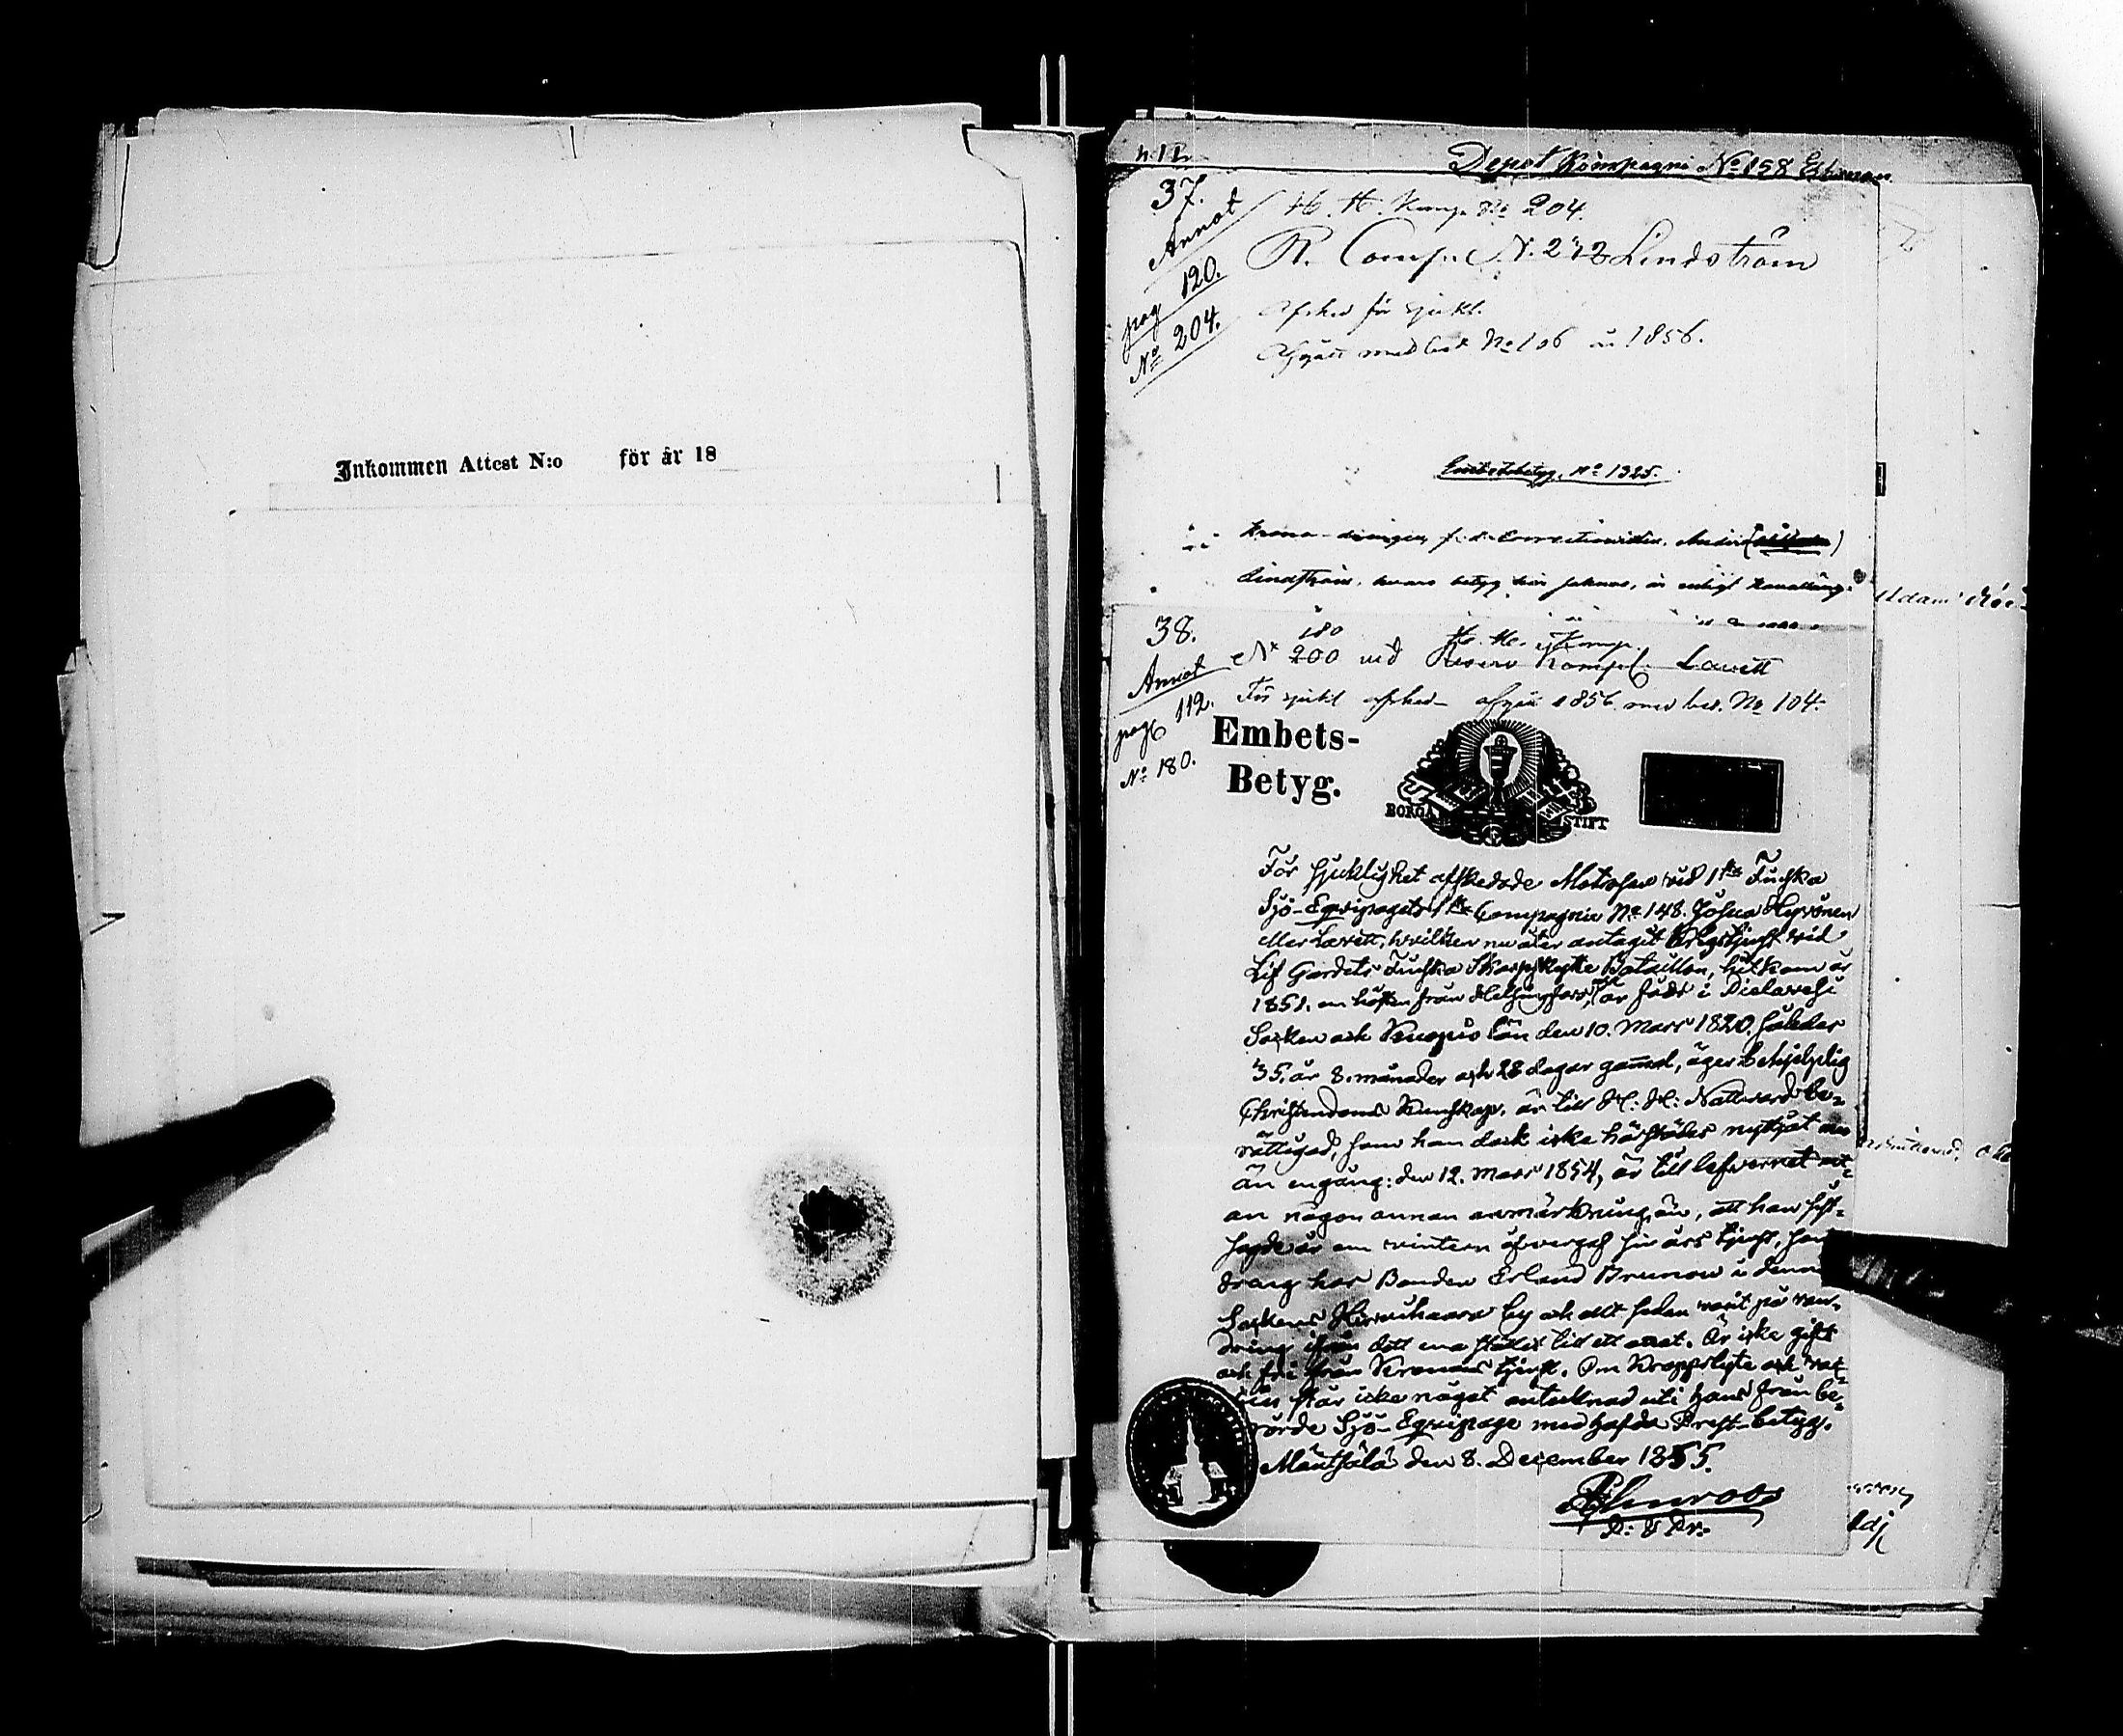 Inkommen Attest N:o för år 18
Depot Kompagni No 198 Ekman
37.
Annot
pag 120.
No 204.
H. H. Komp. No 204.
R. Comp. N. 272 Lindström
Afsked för sjukl.
Afgått med bet No 106 år 1856.
Embetsbetyg, No 1325.
Lindström, hvars betyg här saknas, är enligt
38.
Annot
pag 112.
No 180.
180
No 200 vid Reserv Komp. Lavett
För sjukl afsked afgått 1856 med bet. No 104.
Embets-
Betyg.
BORGÅ STIFT
För sjuklighet afskedade Matrosen vid 1sta Finska
Sjö-Equipagets 1sta Compagnie No 148. Josua Hyvönen
eller Lavett, hvilken nu åter antagit Krigstjenst vid
Lif Gardets Finska Skarpskytte Bataillon, hitkom år
1851. om hösten från Helsingfors, är född i Pielavesi
Socken och Kuopio län den 10. Mars 1820, således
35. år 8. månader och 28 dagar gammal, äger behjelplig
Christendoms Kunskap, är till H: H: Nattvard be-
rättigad, som han dock icke härstädes nyttjat mer
än engång: den 12. Mars 1854, är till lefvernet ut-
an någon annan anmärkning än, att han sist-
om vintern öfvergaf sin års tjenst, som
dräng hos Bonden Erland Brunow i denna
Sockens Hirvihaara by och allt sedan varit på van-
dring ifrån dett ena stället till ett anat. Är icke gift
och fri från Kronans tjenst. Om Kroppslyte och vac-
cin står icke något antecknad uti hans från be-
rörde Sjö-Equipage medhafda Prest-betyg.
Mäntsälä den 8. December 1855.